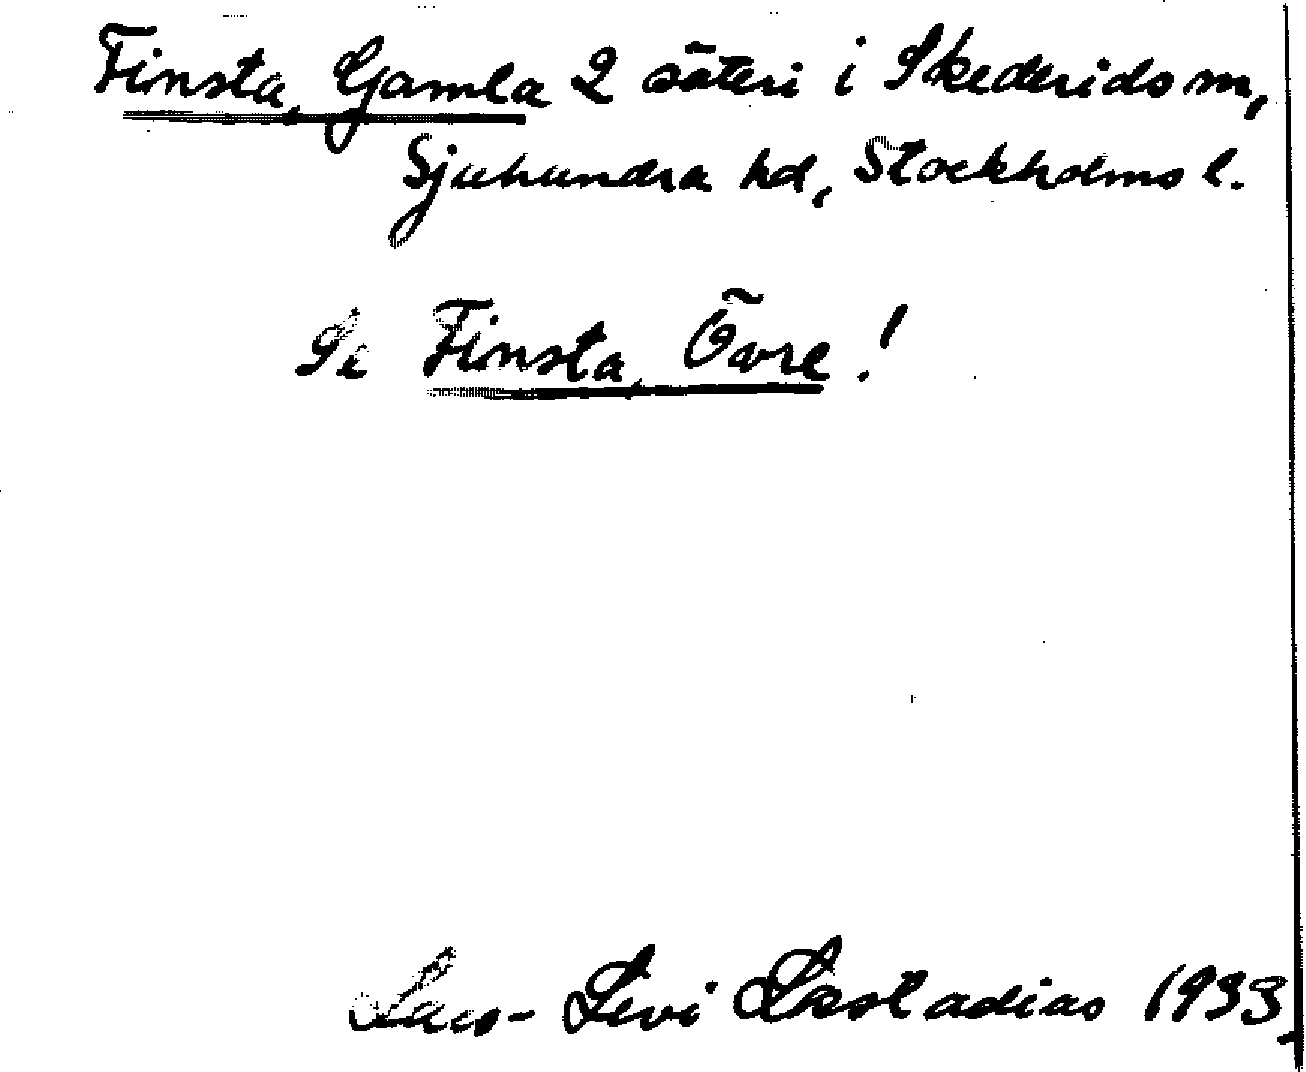 Finsta, Gamla 2 säteri i Skederids sn,
Sjuhundra hd, Stockholms l.
Se Finsta, Övre!
Lars-Levi Læstadius 1933.